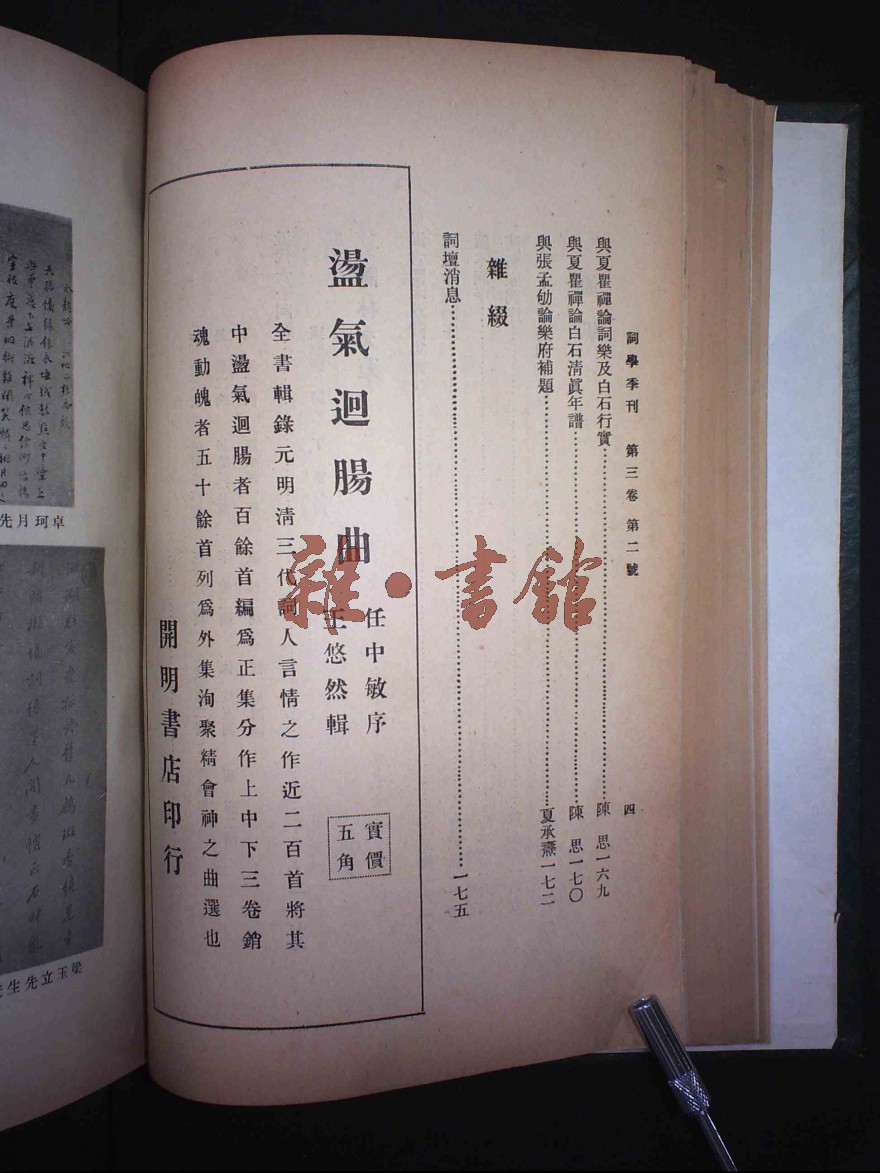 詞學季刊 第三卷 第二號 四
與夏瞿禪論詞樂及白石行實……陳 思 一六九
與夏瞿禪論白石清眞年譜……陳 思 一七〇
與張孟劬論樂府補題……夏承燾 一七二
雜綴
詞壇消息……一七五
盪氣迴腸曲
任中敏序
王悠然輯
實價
五角
全書輯錄元明清三代詞人言情之作近二百首將其
中盪氣迴腸者百餘首編爲正集分作上中下三卷銷
魂動魄者五十餘首列爲外集洵聚精會神之曲選也
開明書店印行
雜·書館
卓珂月先
梁玉立先生